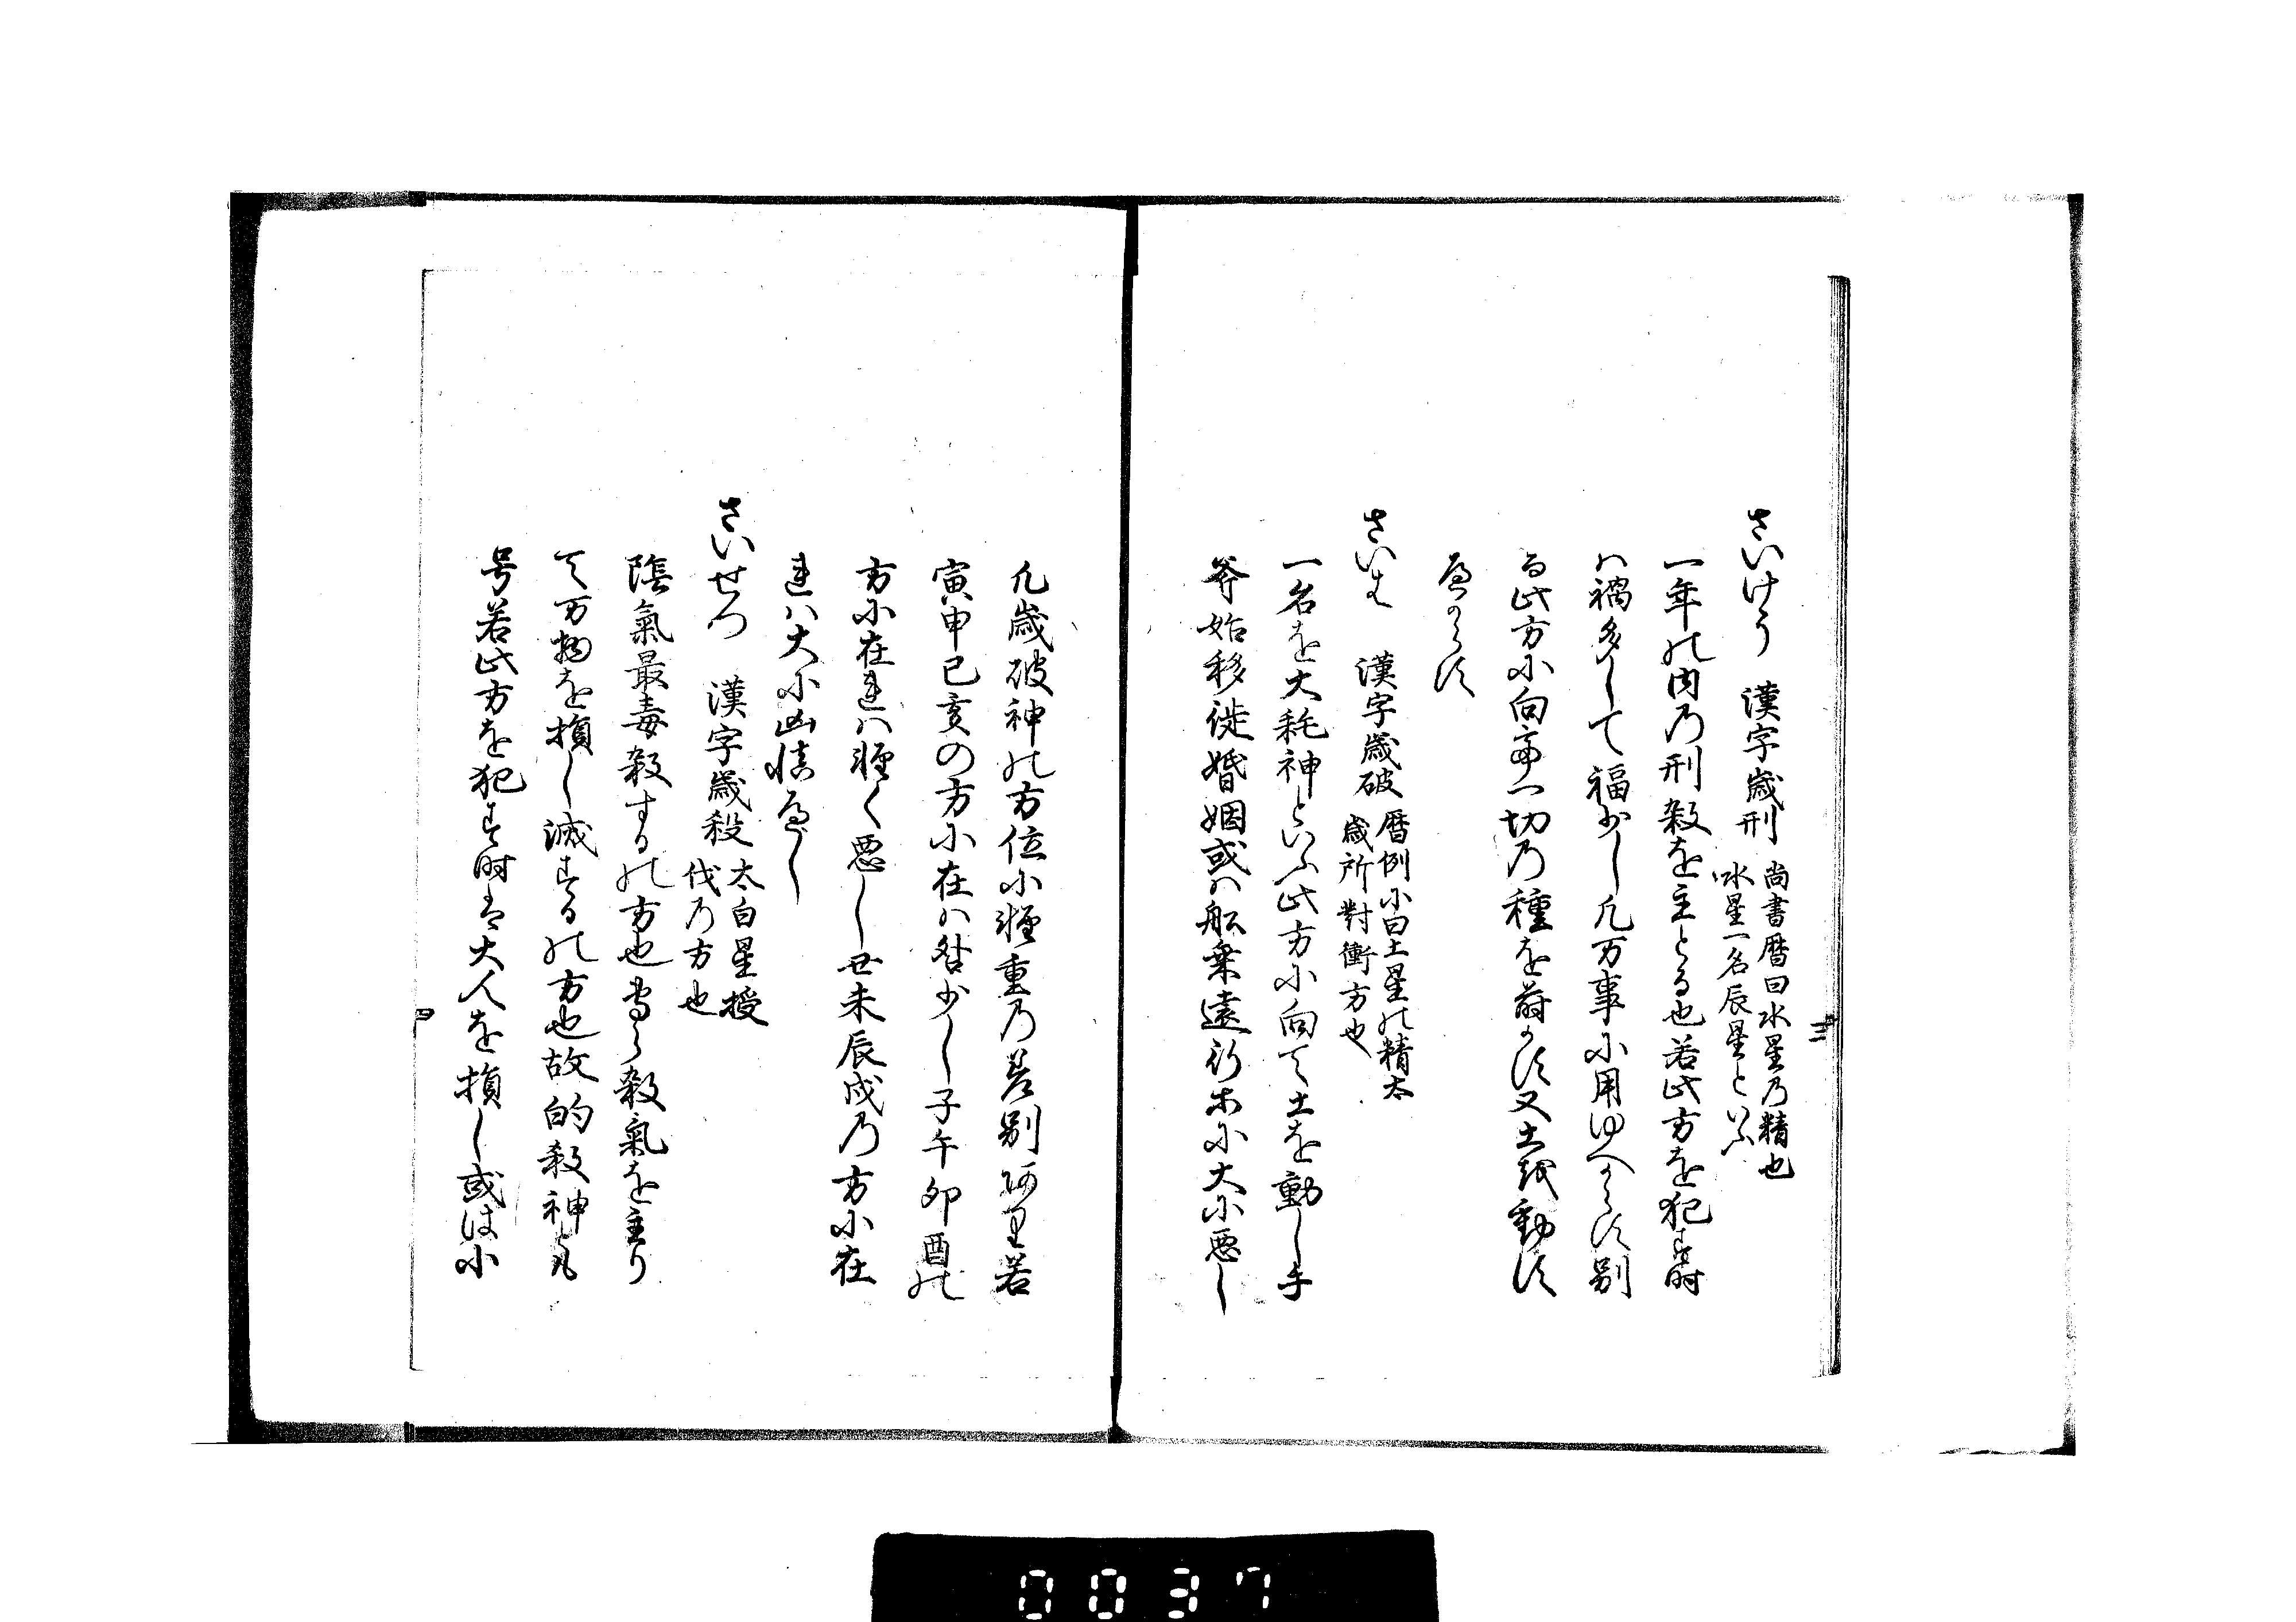 さいけう 漢字歳刑 尚書暦曰水星乃精也
水星一名辰星といふ
一年の内乃刑殺を主とる也若此方を犯す時
ハ禍多して福少し凡万事に用ゆへからす別
る此方に向テ一切乃種を蒔かす又土越動す
へからす
さいは 漢字歳破 暦例に曰土星の精太
歳所對衝方也
一名を大耗神といふ此方に向て土を動し手
斧始移徙婚姻或ハ船乗遠行木に大に悪し
凡歳破神の方位に軽重乃差別阿里若
寅申巳亥の方に在ハ咎少し子午卯酉の
方に在れハ軽く悪し丑未辰戌乃方に在
れハ大に凶慎へし
さいせつ 漢字歳殺 太白星授
伐乃方也
陰氣最毒殺するの方也専ら殺氣を主り
て万物を損し滅するの方也故的殺神と
号若此方を犯す時は大人を損し或は小
三
四
0037